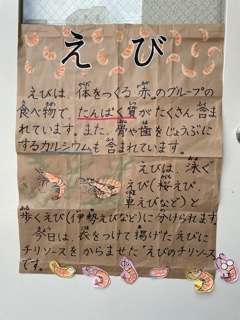 えび
えびは、体をつくる赤のグループの
食べ物で、たんぱく質がたくさん含ま
れています。また、骨や歯をじょうぶに
するカルシウムも含まれています。
えびは、泳ぐ
えび(桜えび、
車えびなど)と
歩くえび(伊勢えびなど)に分けられます。
今日は、衣をつけて揚げたえびに
チリソースをからませた"えびのチリソース"
です。